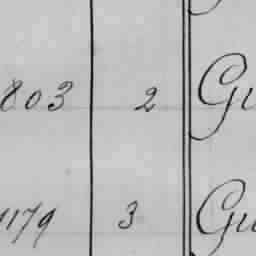 803 2 Gu
1179 3 Gu